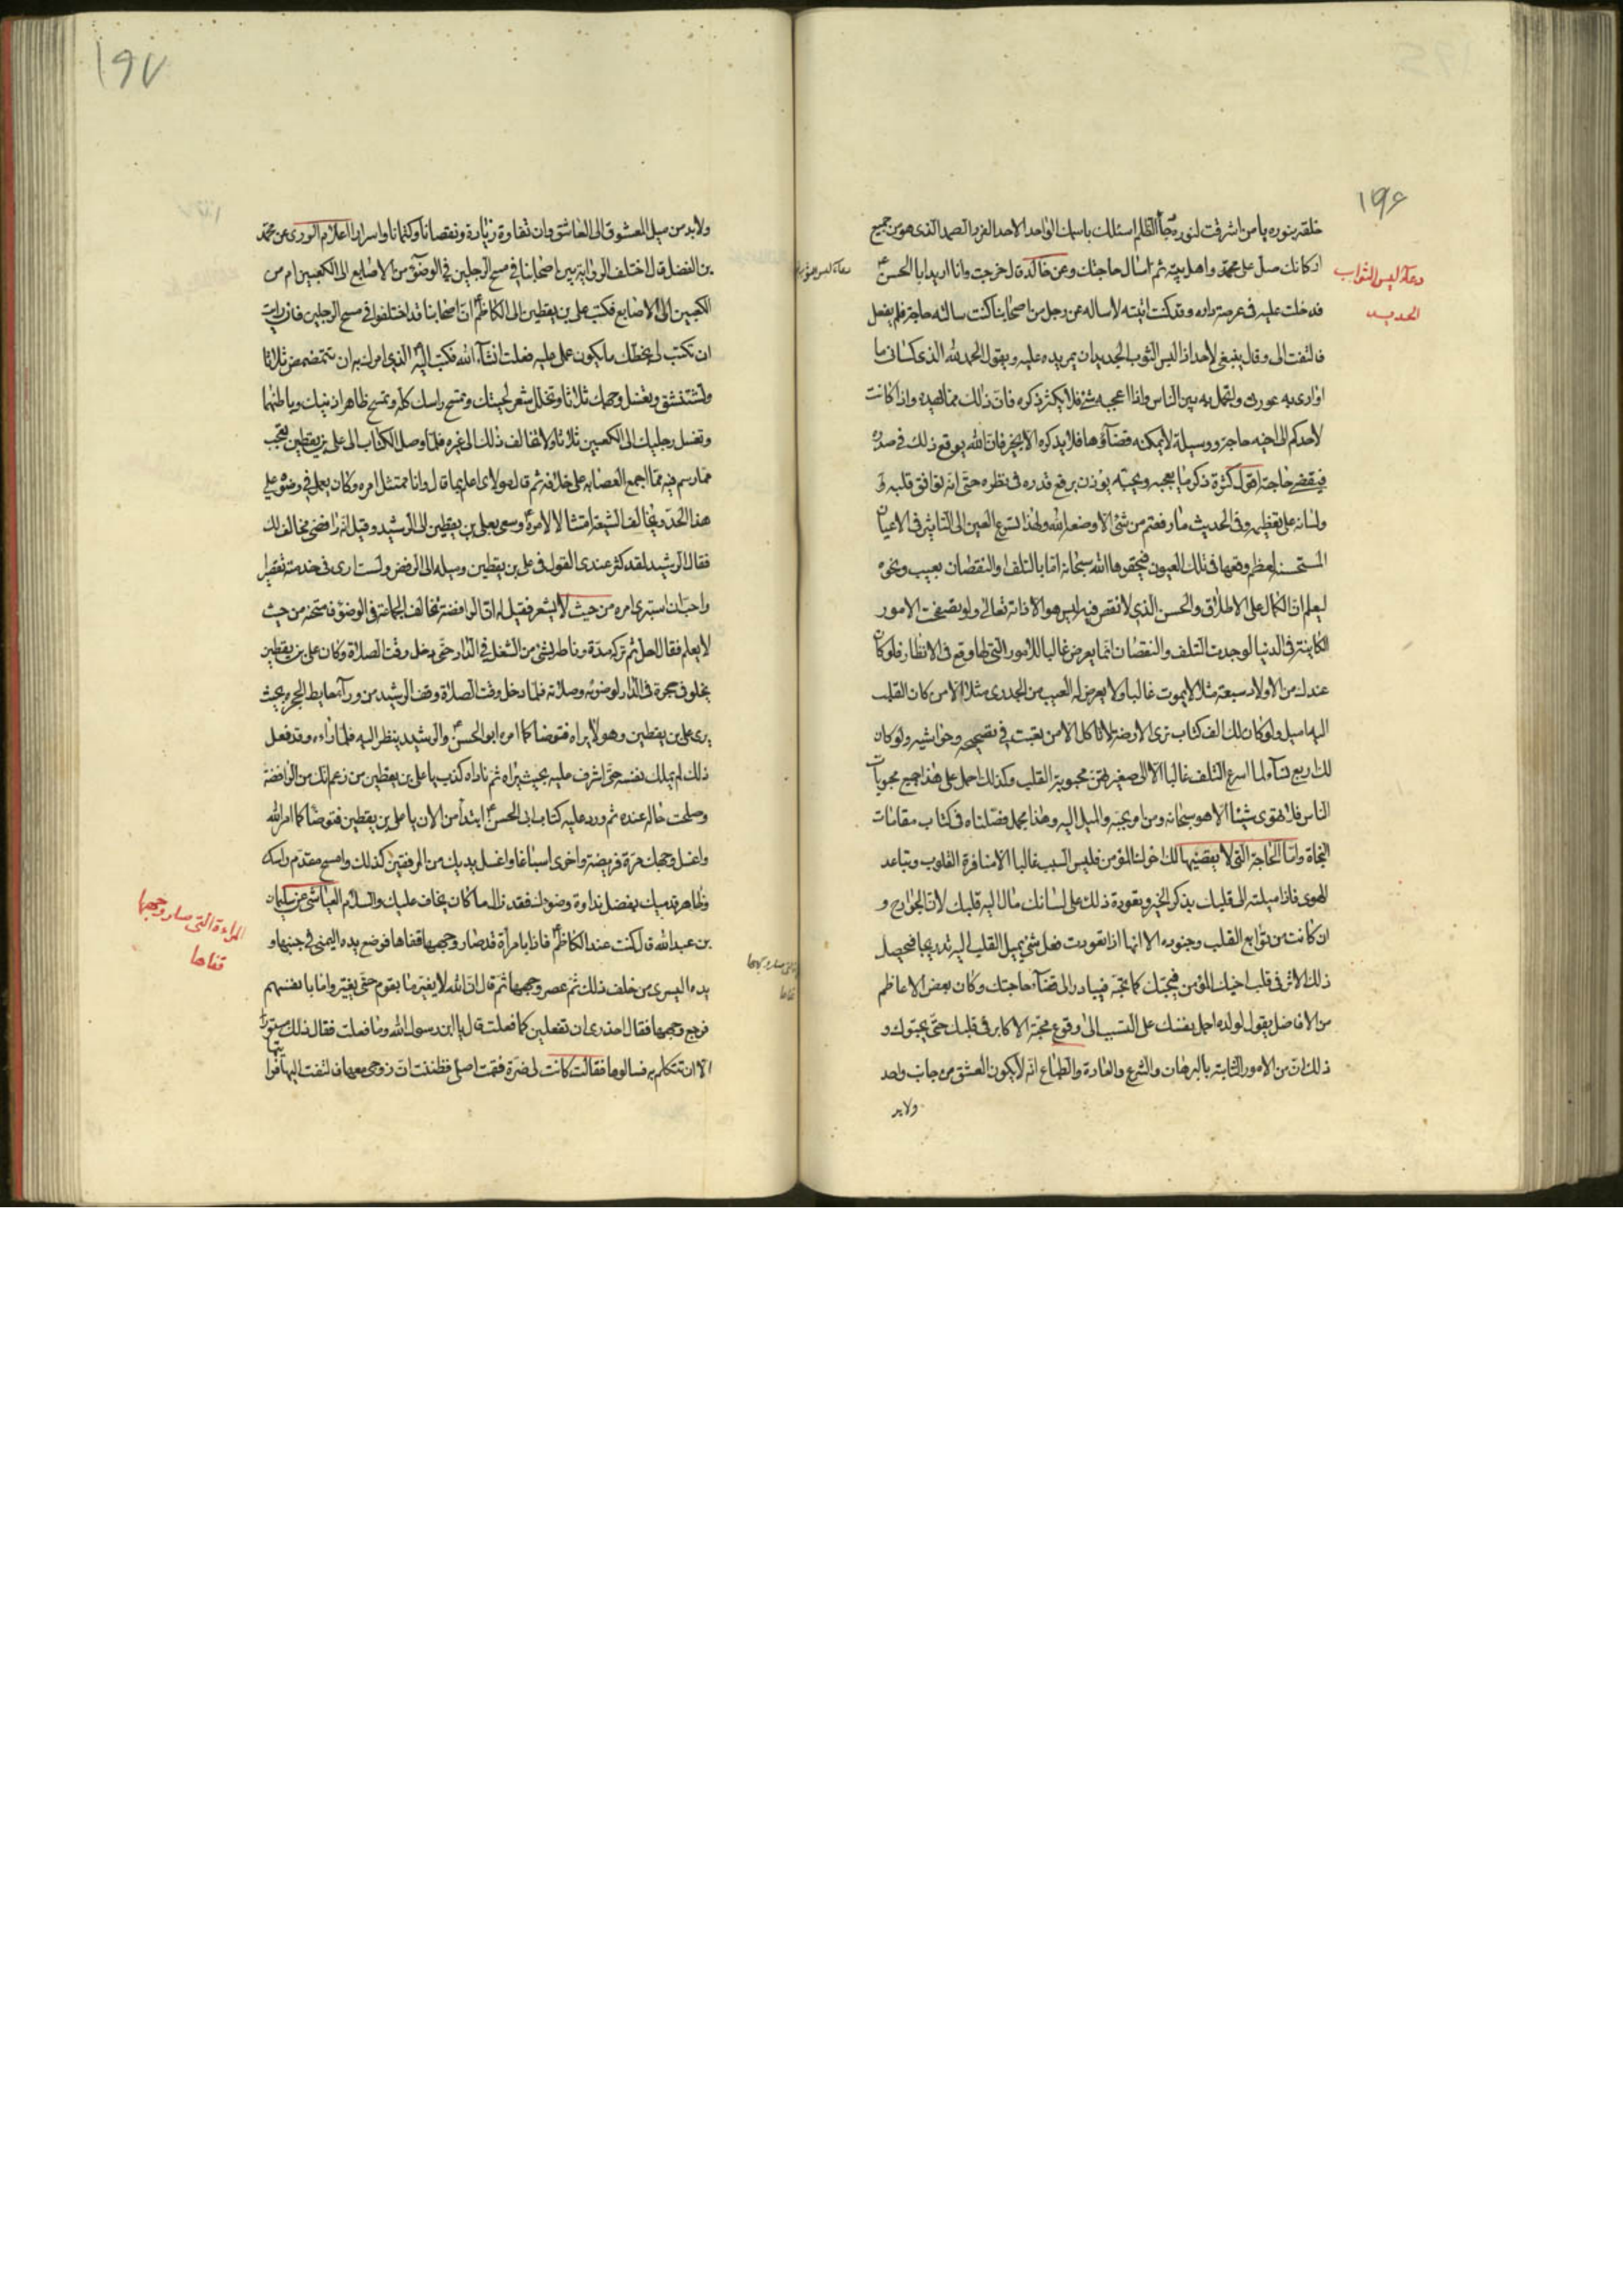 ١٩۶
خلقه بنوره يا من اشرقت لنوره دجأ الظلم اسئلك باسمك الواحد الاحد الفرد الصمد الذى هو من جميع
اركانك صل على محمد واهل بيته ثم اسال حاجتك وعن خالد قال خرجت وانا اريد ابا الحسن ع
دعاء لبس الثواب
الجديد
فدخلت عليه فى عرصة داره وقد كنت اتيته لاساله عن رجل من اصحابنا كنت سالته حاجة فلم يفعل
فالتفت الى وقال ينبغى لاحد اذا لبس الثوب الجديد ان يمر يده عليه ويقول الحمد لله الذى كسانى ما
اوارى به عورتى واتجمل به بين الناس واذا اعجبه شئ فلا يكثر ذكره فان ذلك مما يهده واذا كانت
لاحدكم الى اخيه حاجة ووسيلة لا يمكنه قضاؤها فلا يذكره الا بخير فان الله يوقع ذلك فى صدره
فيقضى حاجته اقول كثرة ذكر ما يعجبه ويحبه يوذن برفع قدره فى نظره حتى انه توافق قلبه و
ولسانه على تعظيمه وفى الحديث ما رفعتم من شئ الا وضعه الله ولهذا تسرع العين الى التاثير فى الاعيان
المستحسنة لعظم وقعها فى تلك العيون فيحقرها الله سبحانه اما بالتلف او النقصان بعيب ونحوه
ليعلم ان الكمال على الاطلاق والحسن الذى لا نقص فيه ليس هو الا ذاته تعالى ولو تصفحت الامور
الكاينة فى الدنيا لوجدت التلف والنقصان انما يعرض غالبا للامور التى لها وقع فى الانظار فلو كان
عندك من الاولاد سبعة مثلا لا يموت غالبا ولا يعرض له العيب من الجدرى مثلا الا من كان القلب
اليه اميل ولو كان لك الف كتاب ترى الارضة لا تاكل الا من تعبت فى تصحيحه وحواشيه ولو كان
لك اربع نسآء لما اسرع التلف غالبا الا الى صغيرتهن محبوبة القلب وكذلك احمل على هذا جميع محبوبات
الناس فلا تهوى شيئا الا هو سبحانه ومن امر بحبه والميل اليه وهذا مجمل فصلناه فى كتاب مقامات
النجاة واما الحاجة التى لا يقضيها لك اخوك المؤمن فليس السبب غالبا الا منافرة القلوب وتباعد
الهوى فاذا ميلته الى قلبك بذكر الخير وتعودة ذلك على لسانك مال اليه قلبك لان الجوارح و
ان كانت من توابع القلب وجنوده الا انها اذا تعودت فعل شئ يميل القلب اليه تدريجا فيحصل
ذلك الاثر فى قلب اخيك المؤمن فيحبك كما تحبه فيبادر الى قضآء حاجتك وكان بعض الاعاظم
من الافاضل يقول لولده احمل نفسك على التسبب الى وقوع محبة الاكابر فى قلبك حتى يحبوك و
ذلك ان من الامور الثابتة بالبرهان والشرع والعادة والطباع انه لا يكون العشق من جانب واحد
ولابد
١٩٧
ولابد من ميل المعشوق الى العاشق وان تفاوة زيادة ونقصانا وكتمانا واسرارا اعلام الورى عن محمد
بن الفضل قال اختلف الرواية بين اصحابنا فى مسح الرجلين فى الوضوء من الاصابع الى الكعبين ام من
الكعبين الى الاصابع فكتب على بن يقطين الى الكاظم ع ان اصحابنا قد اختلفوا فى مسح الرجلين فان رايت
ان تكتب لى بخطك ما يكون عملى عليه فعلت انشآء الله فكتب اليه الذى امرك به ان تتمضمض ثلاثا
وتستنشق وتغسل وجهك ثلاثا وتخلل شعر لحيتك وتمسح راسك كله وتمسح ظاهر اذنيك وباطنهما
وتغسل رجليك الى الكعبين ثلاثا ولا تخالف ذلك الى غيره فلما وصل الكتاب الى على بن يقطين تعجب
مما رسم فيه مما اجمع العصابه على خلافه ثم قال مولاى اعلم بما قال وانا ممتثل امره وكان يعمل فى وضوئه على
هذا الحد ويخالف الشيعة امتثالا لامره ع وسعى بعلى بن يقطين الى الرشيد وقيل انه رافضى مخالف لك
فقال الرشيد لقد كثر عندى القول فى على بن يقطين وميله الى الرفض ولست ارى فى خدمته تقصيرا
واحب ان استبرئ امره من حيث لا يشعر فقيل له ان الرافضة تخالف الجماعة فى الوضوء فامتحنه من حيث
لا يعلم فقال اجل ثم تركه مدة وناطه بشئ من الشغل فى الدار حتى دخل وقت الصلاة وكان على بن يقطين
يخلو فى حجرة فى الدار لوضوئه وصلاته فلما دخل وقت الصلاة وقف الرشيد من ورآء حايط الحجره بحيث
يرى على بن يقطين وهو لا يراه فتوضا كما امره ابو الحسن ع والرشيد ينظر اليه فلما راءه وقد فعل
ذلك لم يملك نفسه حتى اشرف عليه بحيث يراه ثم ناداه كذب يا على بن يقطين من زعم انك من الرافضة
وصلحت حاله عنده ثم ورد عليه كتاب ابى الحسن ع ابتدأ من الان يا على بن يقطين فتوضا كما امر الله
واغسل وجهك مرة فريضة واخرى اسباغا واغسل يديك من المرفقين كذلك وامسح مقدم راسك
وظاهر قدميك بفضل نداوة وضوئك فقد زال ما كان يخاف عليك والسلام العياشى عن سليمان
بن عبد الله قال كنت عند الكاظم ع فاذا بامرأة قد صار وجهها قفاها فوضع يده اليمنى فى جنبيها و
المراءة التى صار وجهها
قفاها
يده اليسرى من خلف ذلك ثم عصر وجهها ثم قال ان الله لا يغير ما بقوم حتى يغيروا ما بانفسهم
فرجع وجهها فقال احذرى ان تفعلين كما فعلت قال يا ابن رسول الله وما فعلت فقال ذلك مستور
الا ان تتكلم به فسالوها فقالت كانت لى ضرة فقمت اصلى فظننت ان زوجى معها فالتفت اليها فرا
يتها